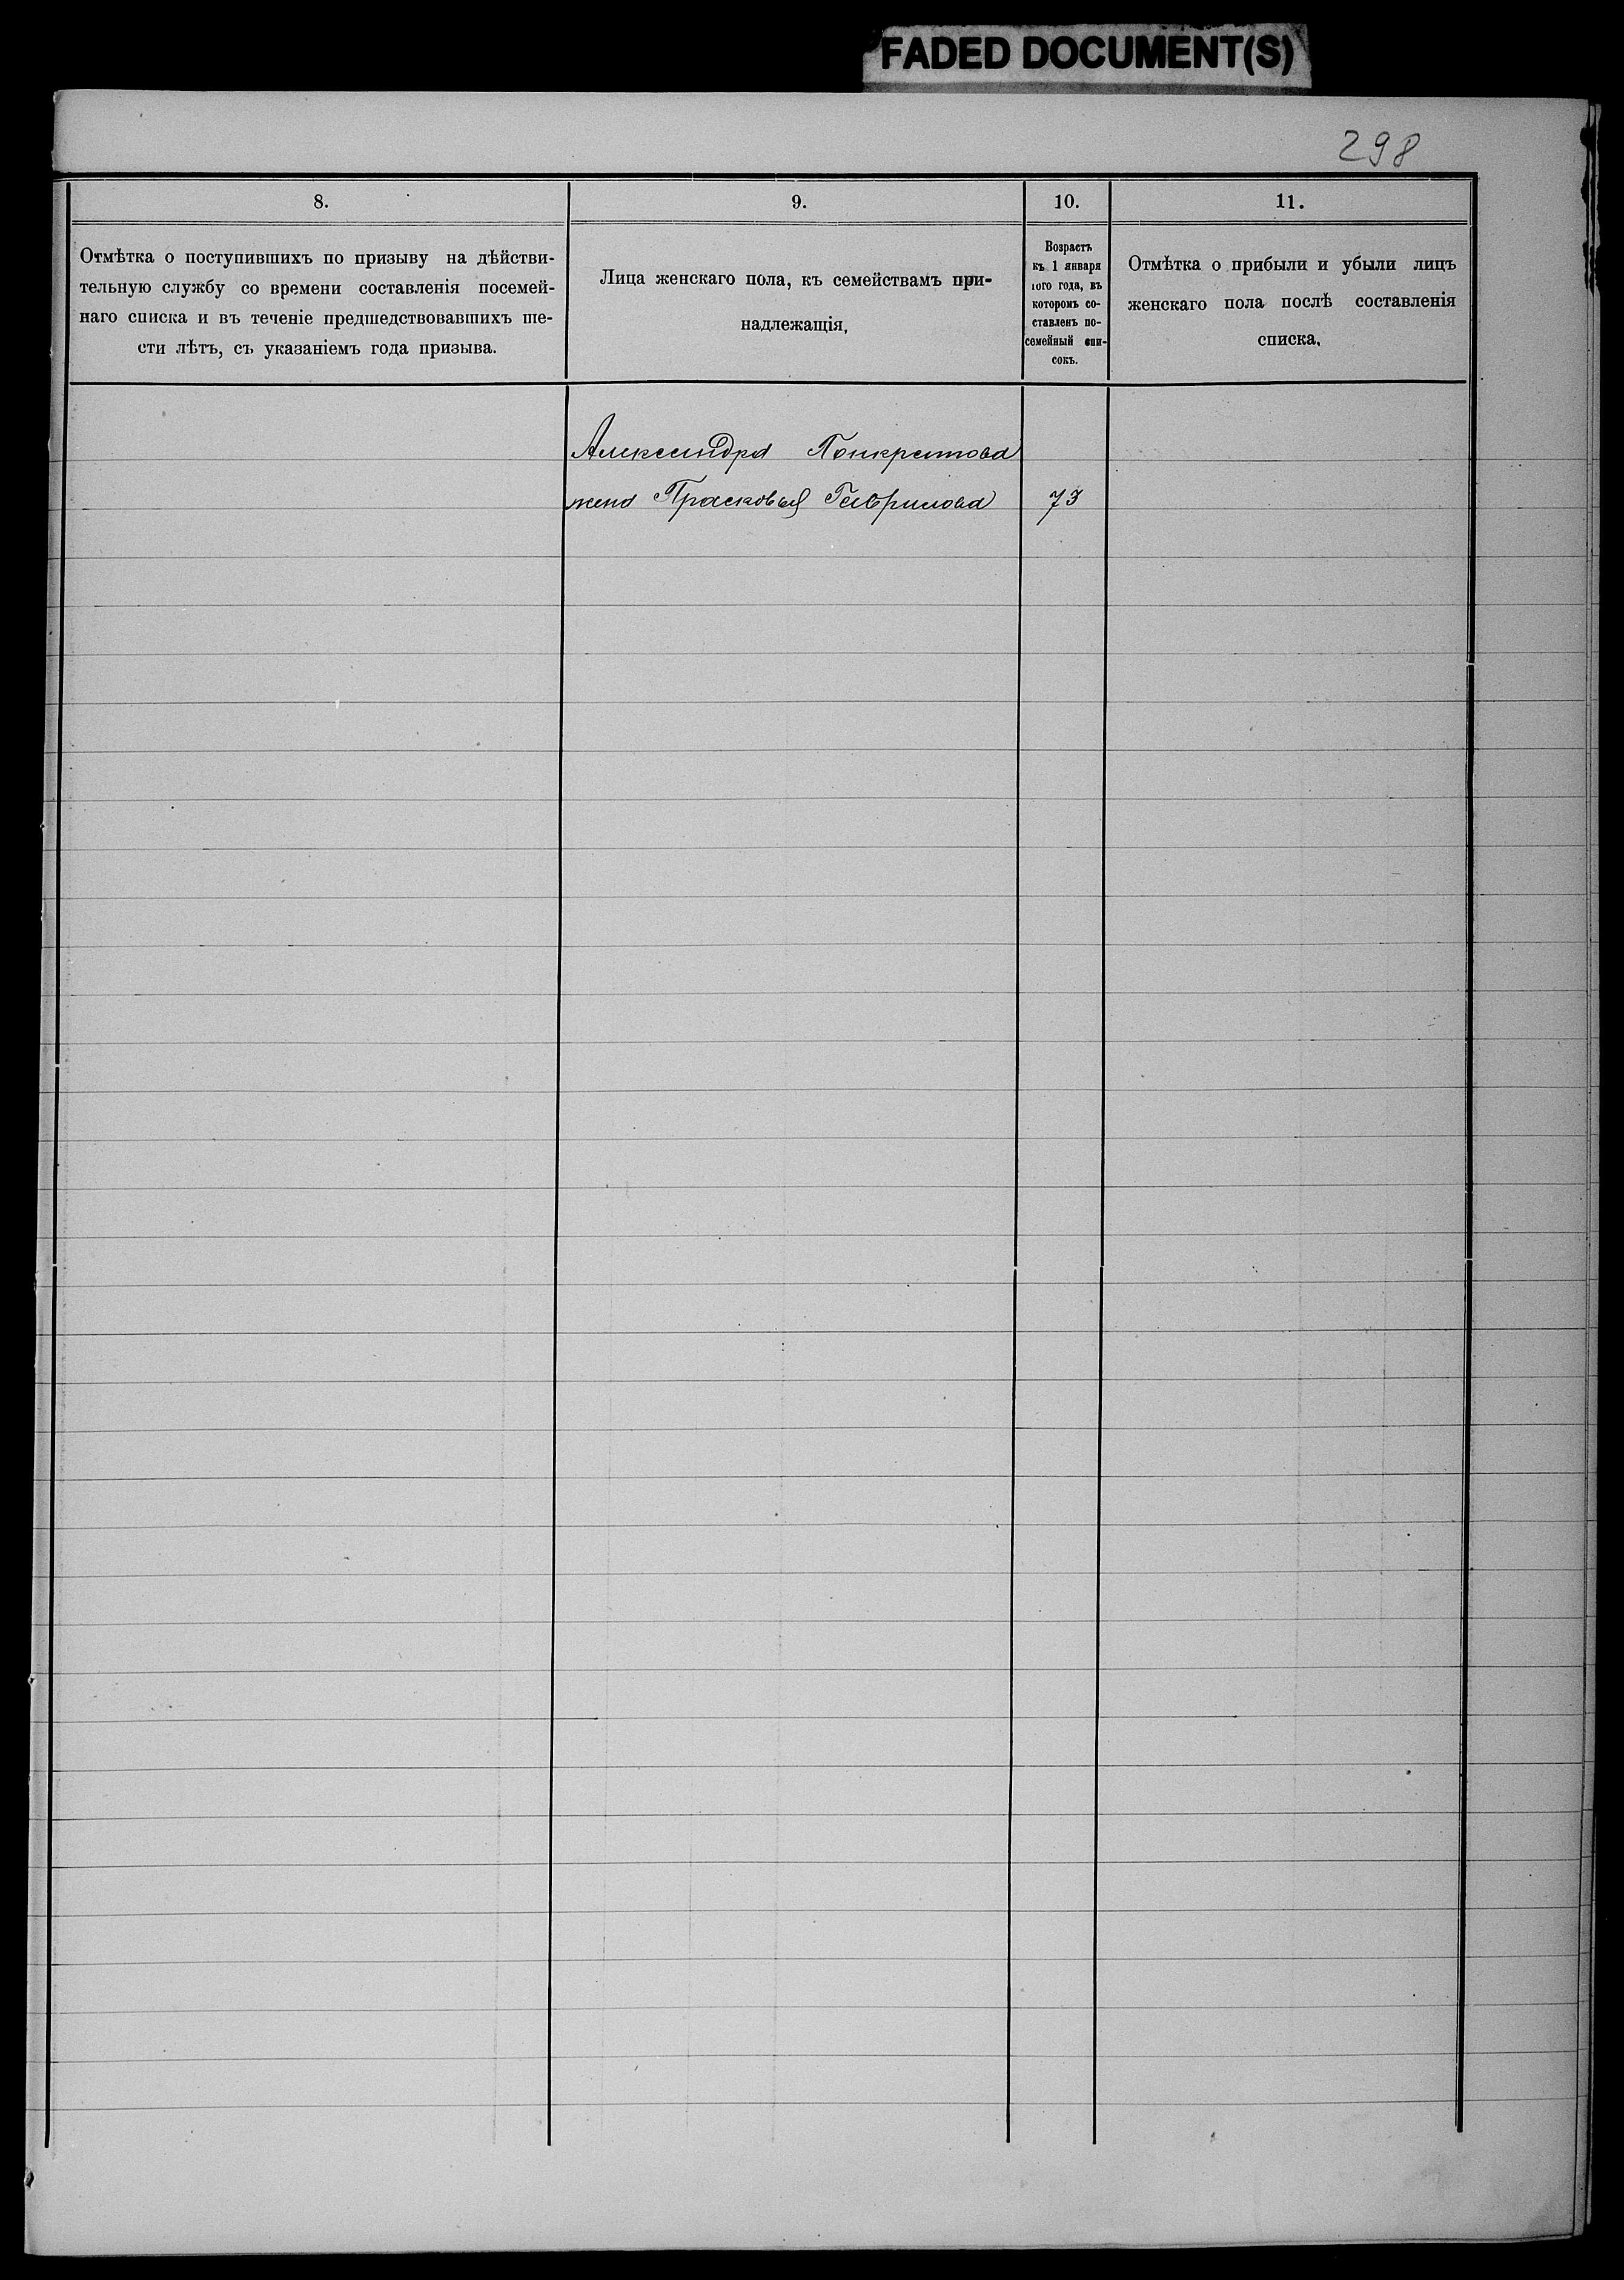 FADED DOCUMENT(S)
298
8.
Отмѣтка о поступившихъ по призыву на дѣйстви-
тельную службу со времени составленія посемей-
наго списка и въ теченіе предшедствовавшихъ ше-
сти лѣтъ, съ указаніемъ года призыва.
9.
Лица женскаго пола, къ семействамъ при-
надлежащія,
10.
Возрастъ
къ 1 января
того года, въ
которомъ со-
ставленъ по-
семейный спи-
сокъ.
11.
Отмѣтка о прибыли и убыли лицъ
женскаго пола послѣ составленія
списка,
Александра Понкратова
жена Прасковья Гаврилова 73